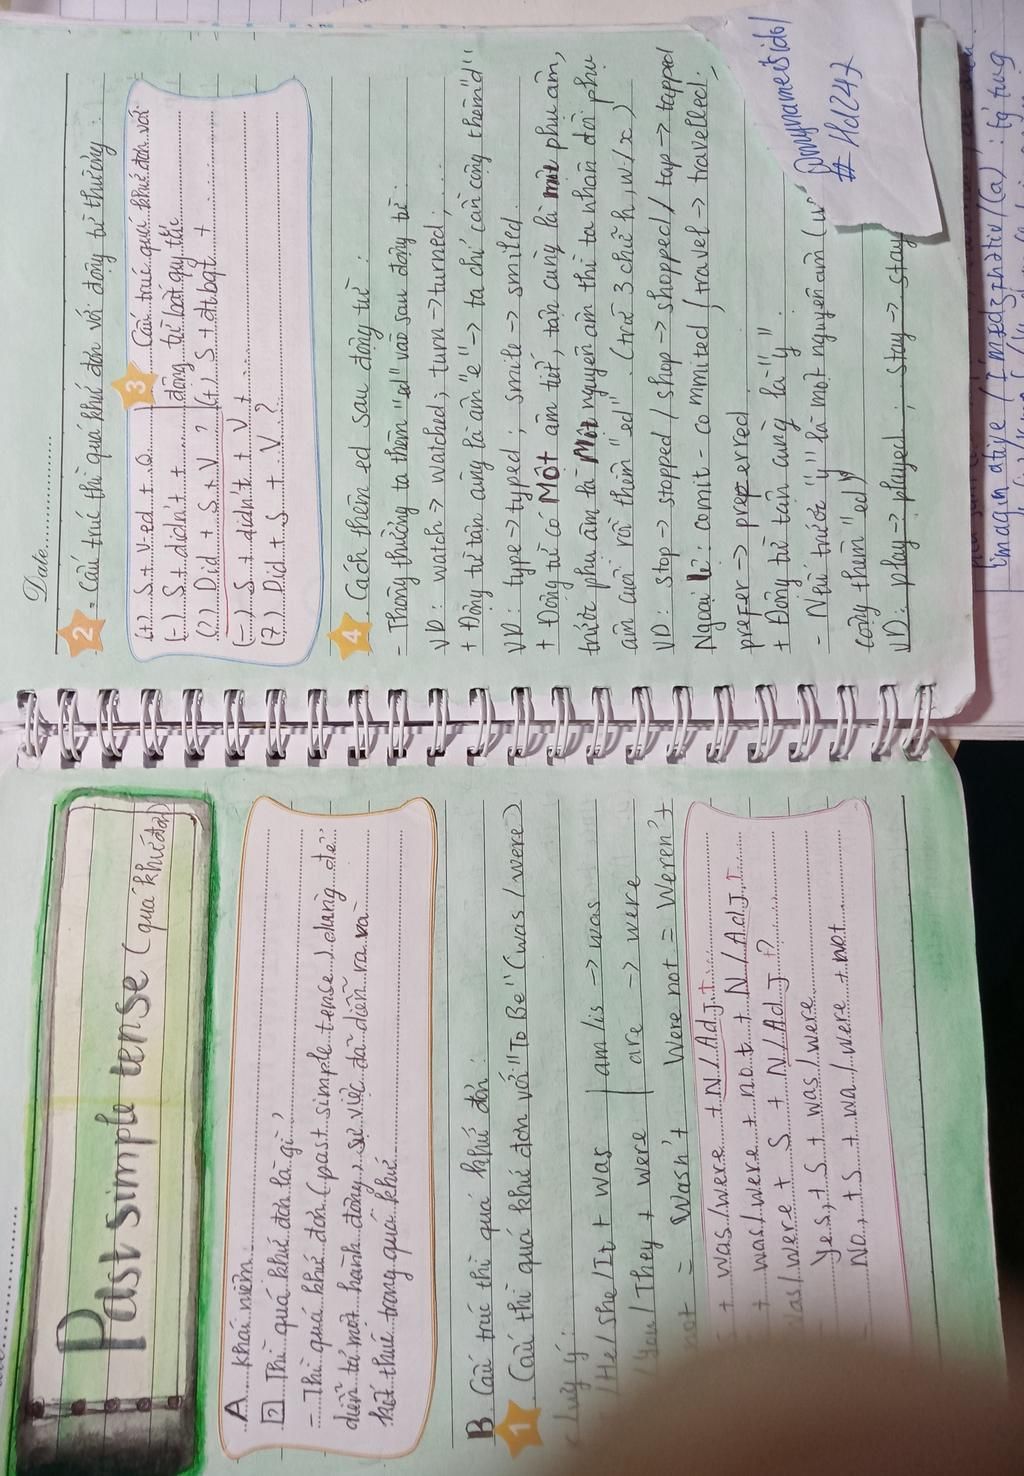 Past simple tense (quá khứ đơn)
A khái niệm
? Thì quá khứ đơn là gì?
- Thì quá khứ đơn (past simple tense) dùng để
diễn tả một hành động, sự việc đã diễn ra và
kết thúc trong quá khứ
B. Cấu trúc thì quá khứ đơn:
1. Cấu thì quá khứ đơn với "To Be" (was/were)
Chúý ý:
/He/she/It + was | am/is -> was
/You/They + were | are -> were
not = Wasn't Were not = Weren't
+ was/were + N/Adj
+ was/were + not + N/Adj
Was/were + S + N/Adj ?
Yes, + S + was/were
No, + S + wa/were + not
Date
2. Cấu trúc thì quá khứ đơn với động từ thường
(+) S + V-ed + O
(-) S + didn't +
(?) Did + S + V ?
(-) S + didn't + V +
(?) Did + S + V ?
3 Cấu trúc quá khứ đơn với
động từ bất quy tắc
(+) S + đtbqt +
4. Cách thêm ed sau động từ:
- Thông thường ta thêm "ed" vào sau động từ.
VD: watch -> watched, turn -> turned, ...
+ Động từ tận cùng là âm "e" -> ta chỉ cần cộng thêm "d"
VD: type -> typed; smile -> smiled
+ Động từ có Một âm tiết, tận cùng là một phụ âm,
trước phụ âm là Một nguyên âm thì ta nhân đôi phụ
âm cuối rồi thêm "ed". (trừ 3 chữ h, w, x)
VD: stop -> stopped / shop -> shopped / tap -> tapped
Ngoại lệ: comit - commited / travel -> travelled.
prefer -> preperred
+ Động từ tận cùng là "y"
- Nếu trước "y" là một nguyên âm
cộng thêm "ed"
VD: play -> played; stay -> stay
@mynameisido/
#Hd247
imaginative
(a) : tg tưg